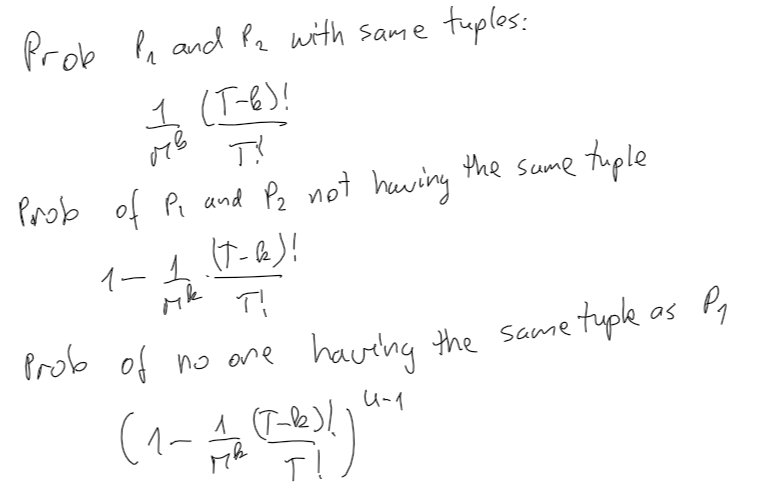 Prob P₁ and P₂ with same tuples:
1/M^k (T-k)!/T!
Prob of P₁ and P₂ not having the same tuple
1 - 1/M^k · (T-k)!/T!
Prob of no one having the same tuple as P₁
(1 - 1/M^k (T-k)!/T!)^(u-1)